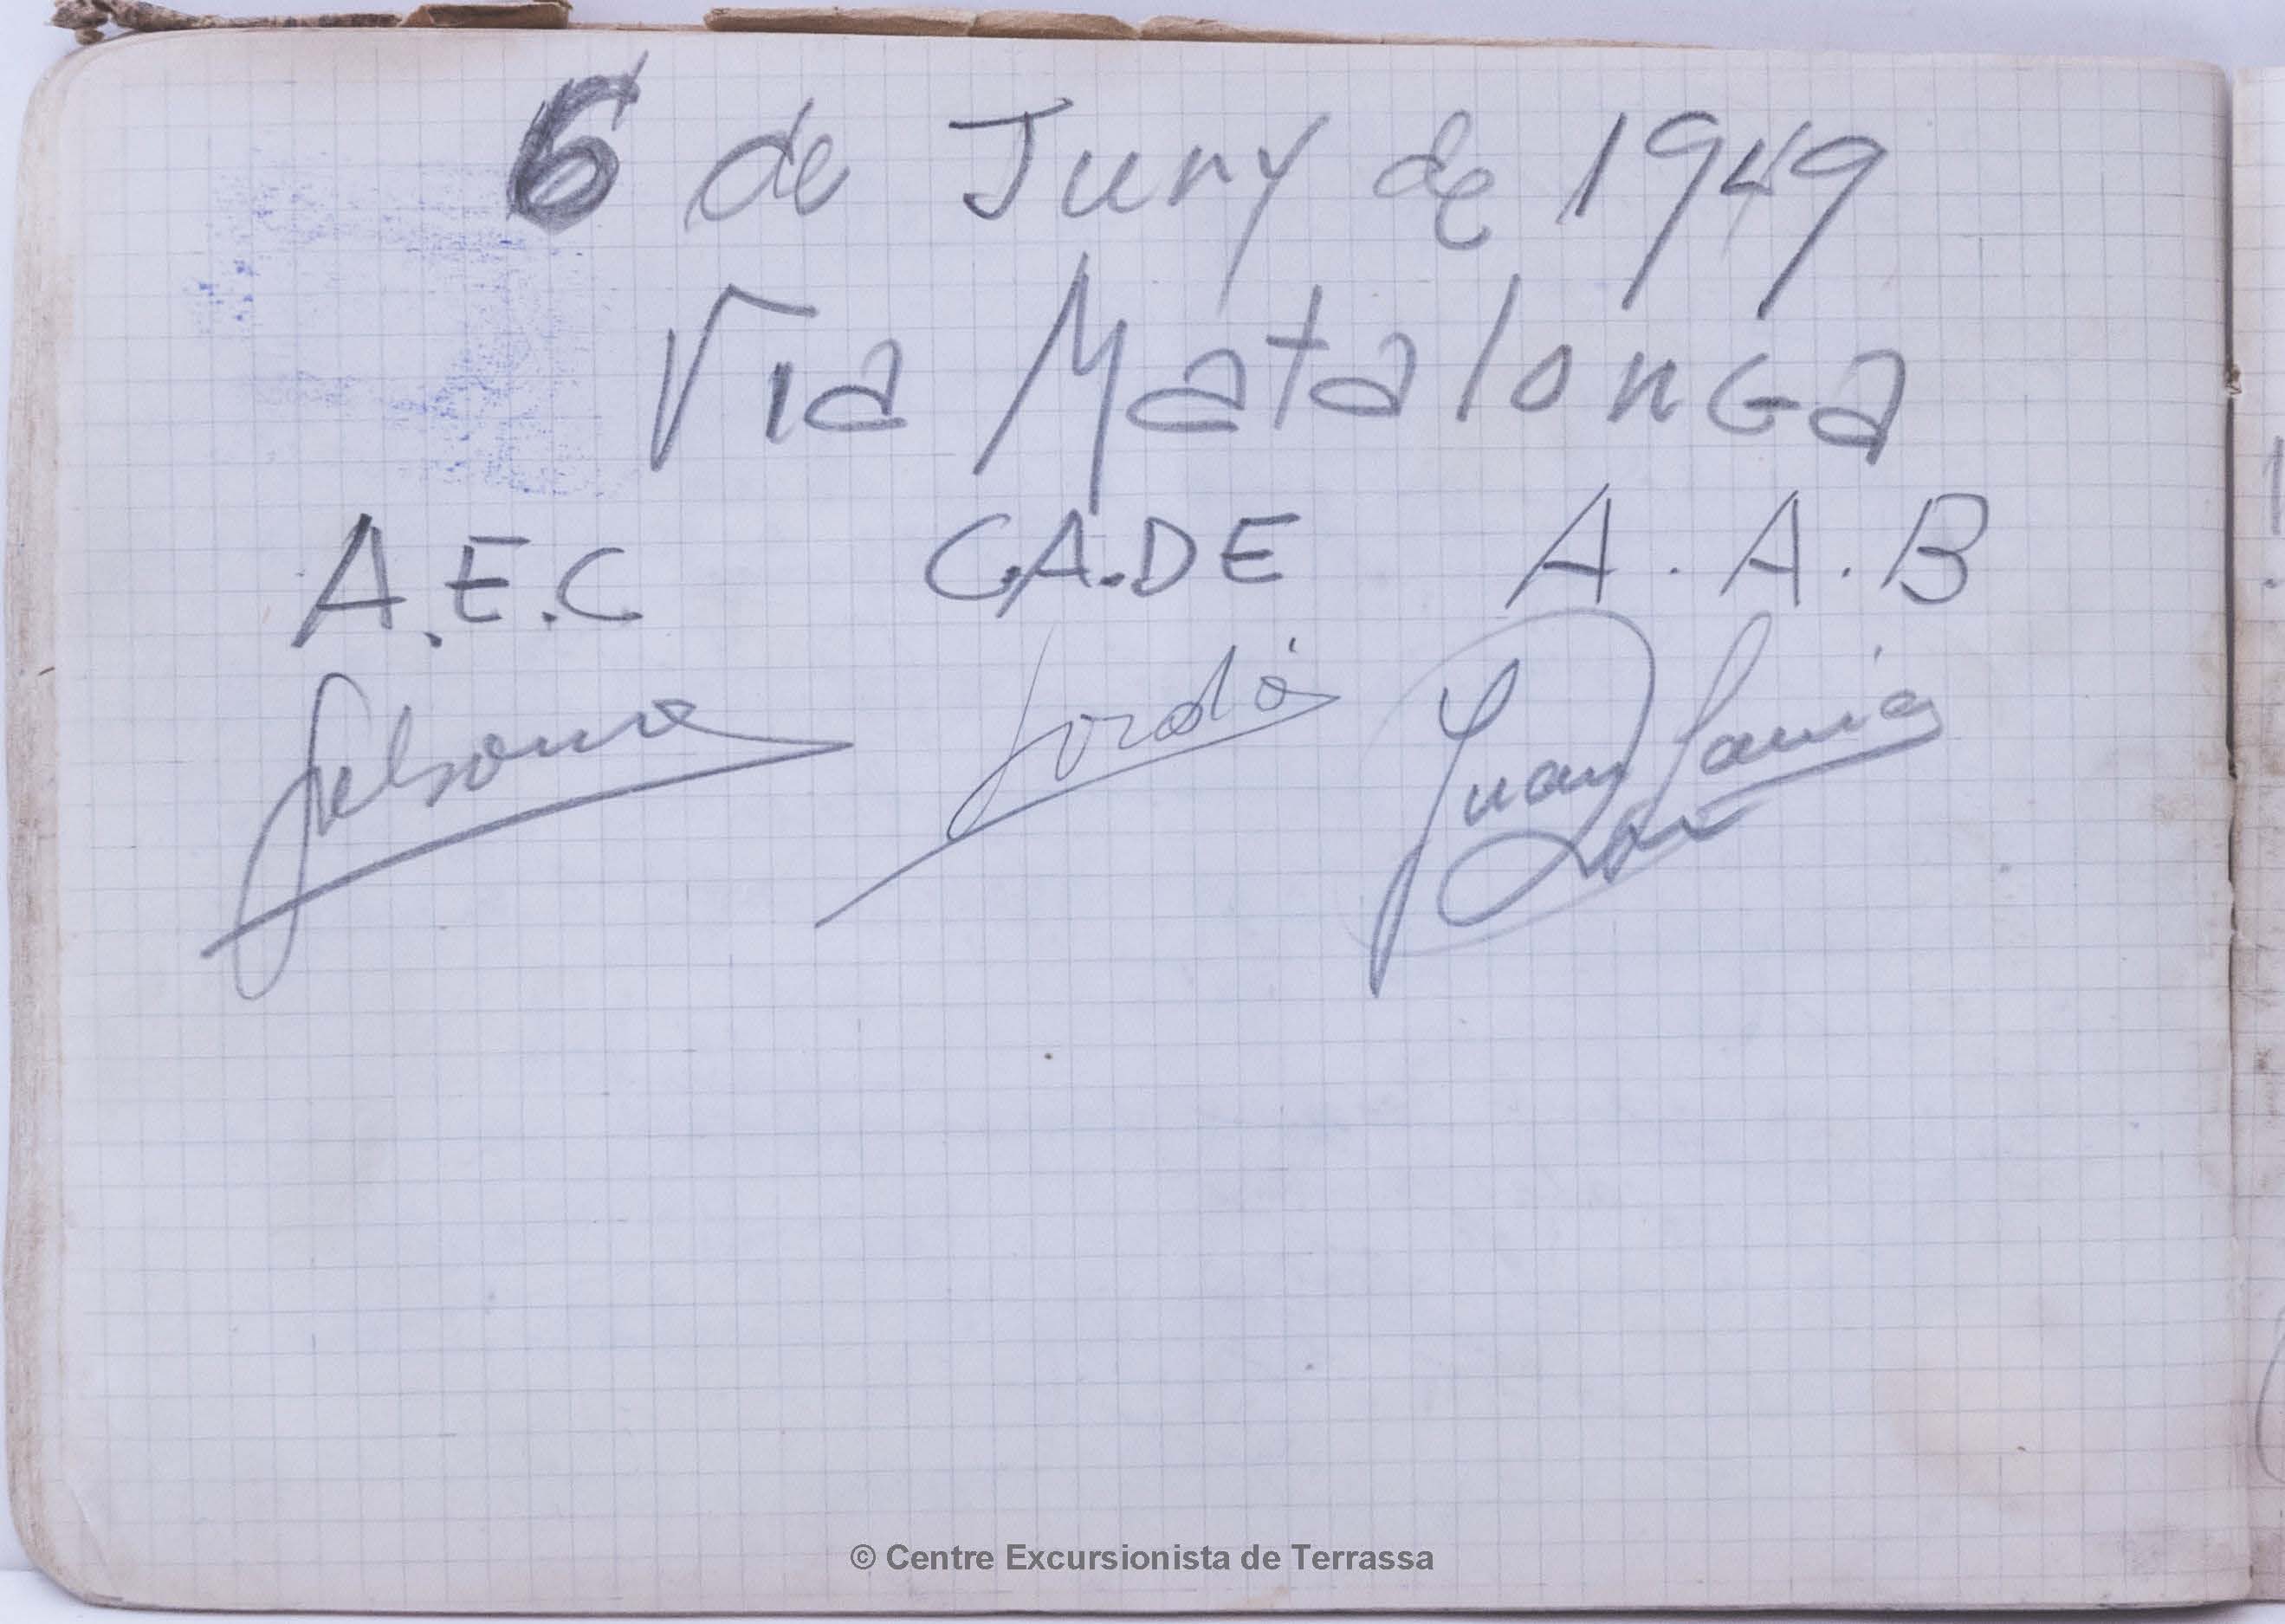 6 de Juny de 1949
Via Matalonga
A.E.C C.A.DE A.A.B
Jordà Juan
© Centre Excursionista de Terrassa